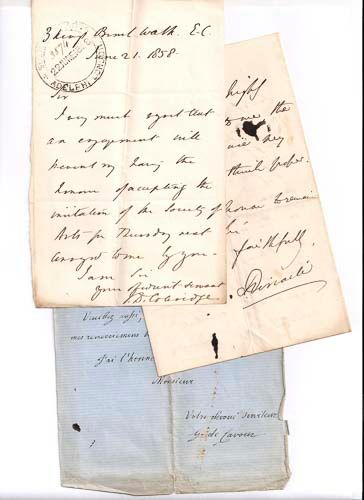 3 King's Bench Walk. E.C.
June 21. 1858.
Sir
I very much regret that
an engagement will
prevent my having the
honour of accepting the
invitation of the Society of
Arts for Thursday next
conveyed to me by you.
I am Sir
your obedient servant
J.D. Coleridge
ADELPHI
might
me the
think proper.
honour to remain
faithfully
Disraeli
Veuillez
mes remerciements
J'ai l'honneur
Monsieur
Votre dévoué Serviteur
de Cavour